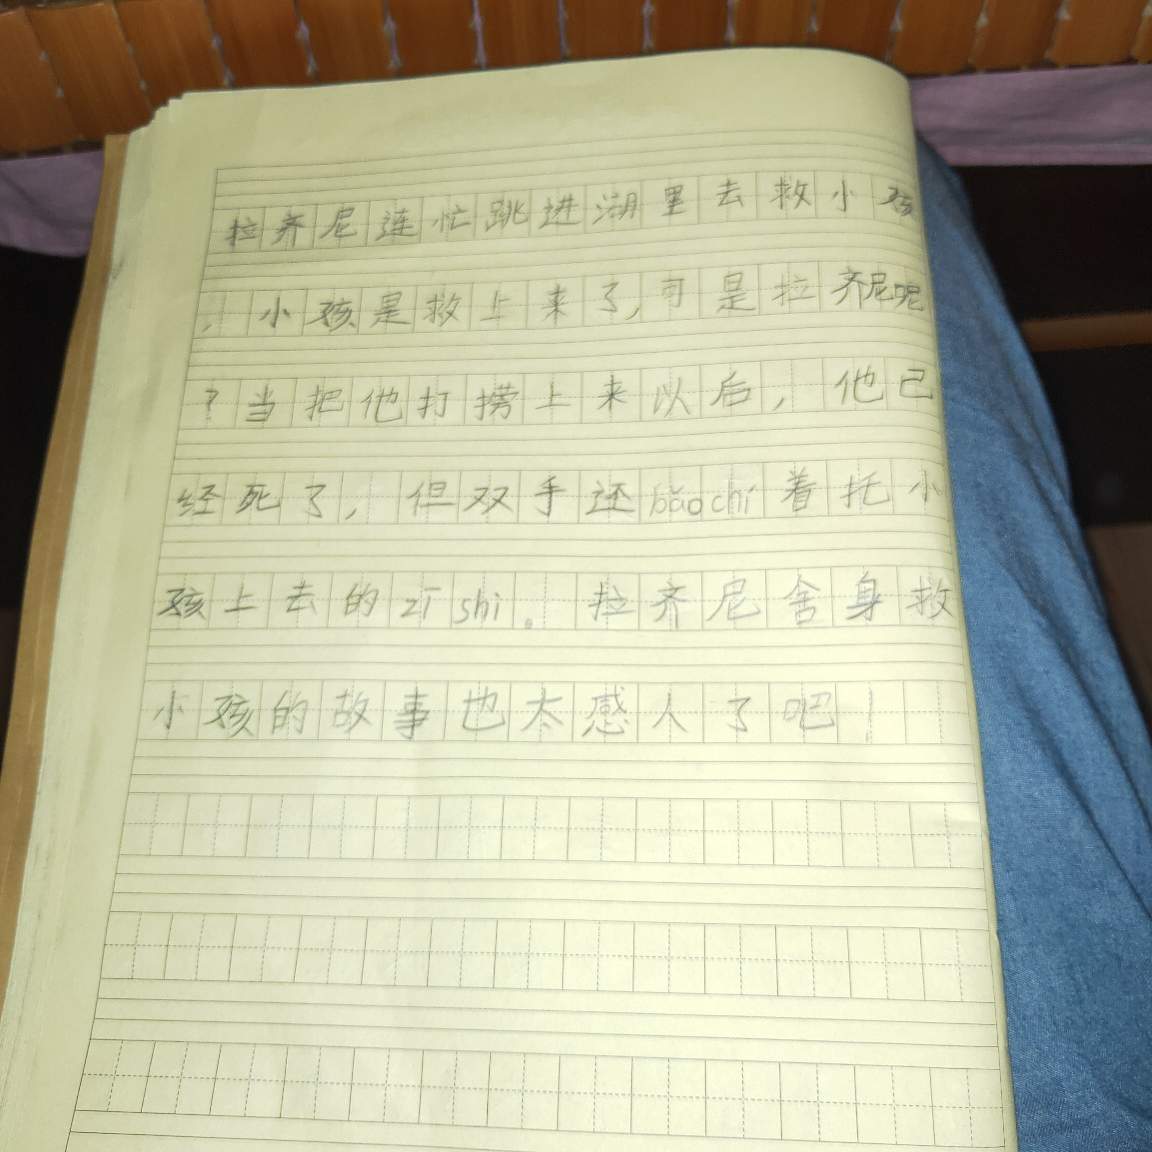 拉齐尼连忙跳进湖里去救小孩
，小孩是救上来了，可是拉齐尼呢
？当把他打捞上来以后，他已
经死了，但双手还bǎochí着托小
孩上去的zī shì。拉齐尼舍身救
小孩的故事也太感人了吧！